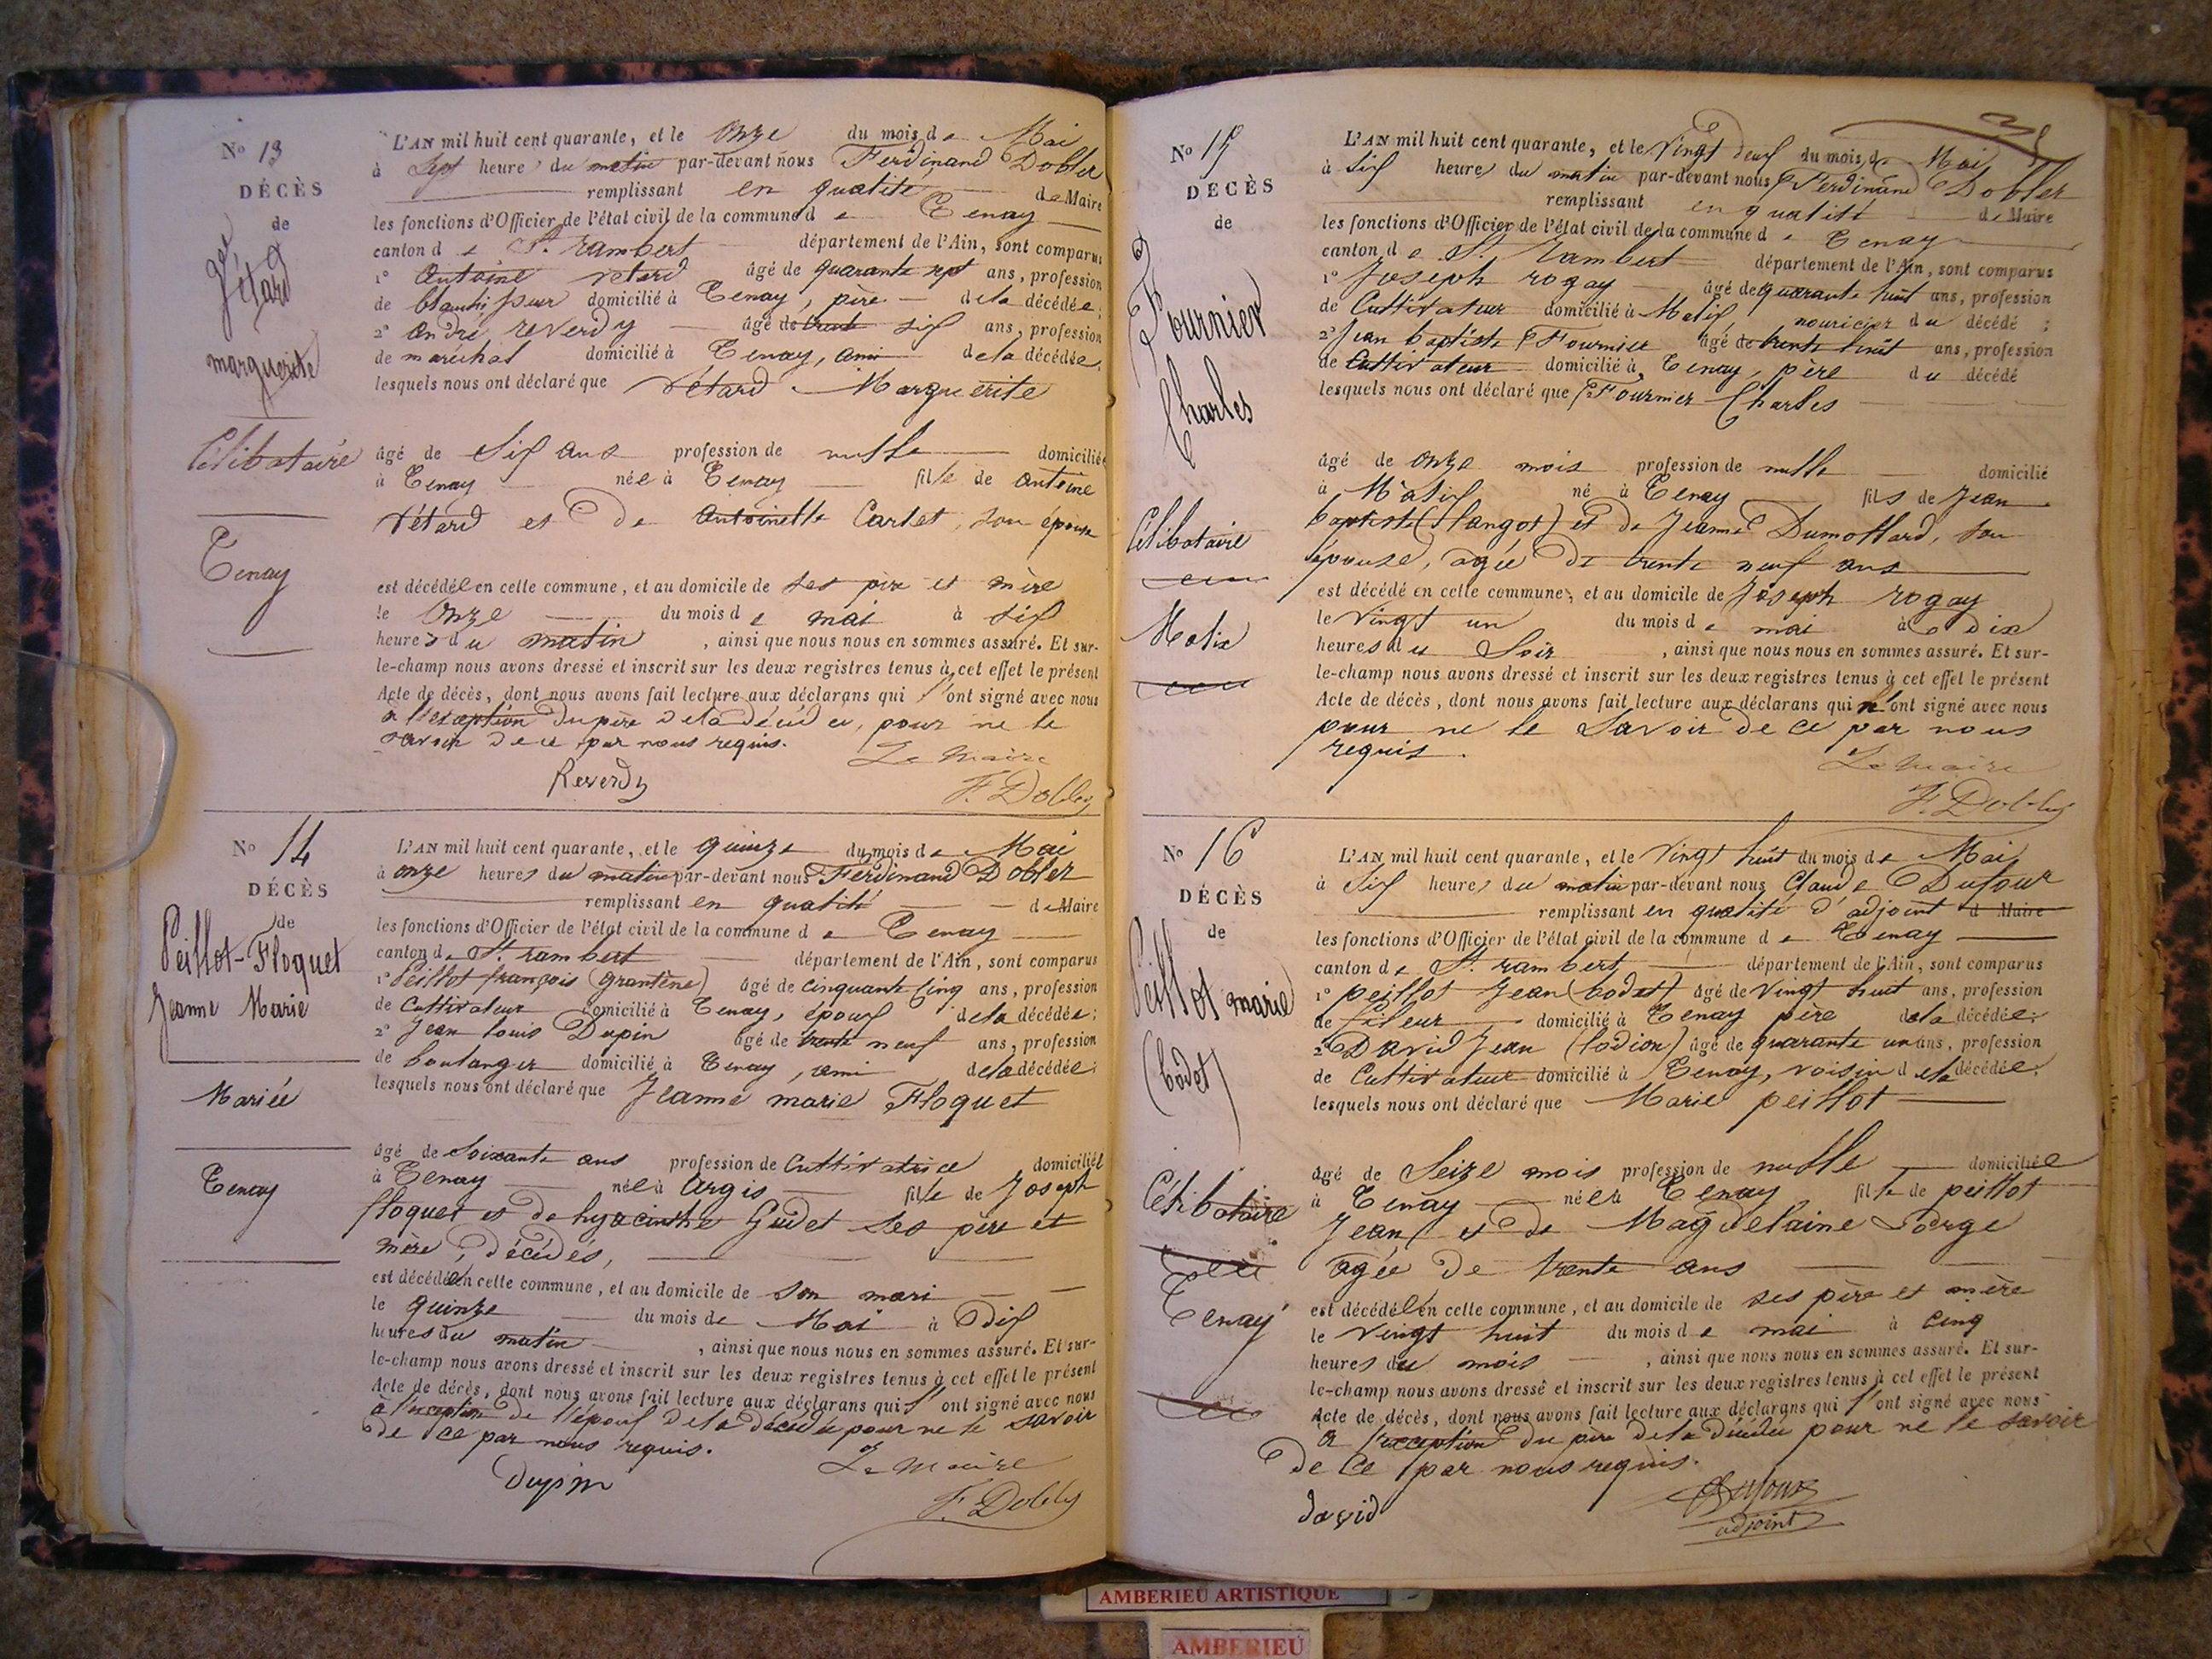 No 13
DÉCÈS
de
Vétard
marguerite
Célibataire
Tenay
L'AN mil huit cent quarante, et le onze du mois de Mai
à Sept heures du matin par-devant nous Ferdinand Dobler
remplissant en qualité de Maire
les fonctions d'Officier de l'état civil de la commune de Tenay
canton de St. rambert département de l'Ain, sont comparus
1° Antoine vétard âgé de quarante sept ans, profession
de blanchisseur domicilié à Tenay, père de la décédée;
2° andré reverdy âgé de trente six ans, profession
de maréchal domicilié à Tenay, ami de la décédée,
lesquels nous ont déclaré que Vétard Marguerite
âgé de Six ans profession de nulle domiciliée
à Tenay née à Tenay fille de antoine
vétard et de antoinette Carlet, son épouse
est décédée en cette commune, et au domicile de ses père et mère
le Onze du mois de mai à six
heures du matin, ainsi que nous nous en sommes assuré. Et sur-
le-champ nous avons dressé et inscrit sur les deux registres tenus à cet effet le présent
Acte de décès, dont nous avons fait lecture aux déclarans qui l'ont signé avec nous
à l'exception du père de la décédée, pour ne le
savoir de ce par nous requis.
Le Maire
Reverdy
F. Dobler
No 14
DÉCÈS
de
Peillot-Floquet
Jeanne Marie
Mariée
Tenay
L'AN mil huit cent quarante, et le quinze du mois de Mai
à onze heures du matin par-devant nous Ferdinand Dobler
remplissant en qualité de Maire
les fonctions d'Officier de l'état civil de la commune de Tenay
canton de St. rambert département de l'Ain, sont comparus
1° Peillot françois (grantène) âgé de cinquante cinq ans, profession
de Cultivateur domicilié à Tenay, époux de la décédée;
2° Jean louis Dupin âgé de trente neuf ans, profession
de boulanger domicilié à Tenay, ami de la décédée;
lesquels nous ont déclaré que Jeanne marie Floquet
âgé de Soixante ans profession de Cultivatrice domiciliée
à Tenay née à Argis fille de Joseph
floquet et de hyacinthe Gudet ses père et
mère, décédés,
est décédée en cette commune, et au domicile de son mari
le quinze du mois de Mai à Dix
heures du matin, ainsi que nous nous en sommes assuré. Et sur-
le-champ nous avons dressé et inscrit sur les deux registres tenus à cet effet le présent
Acte de décès, dont nous avons fait lecture aux déclarans qui l'ont signé avec nous
à l'exception de l'époux de la décédée pour ne le savoir
de ce par nous requis.
Le Maire
Dupin
F. Dobler
No 15
DÉCÈS
de
Fournier
Charles
Célibataire
Matix
L'AN mil huit cent quarante, et le Vingt deux du mois de Mai
à Six heures du matin par-devant nous Ferdinand Dobler
remplissant en qualité de Maire
les fonctions d'Officier de l'état civil de la commune de Tenay
canton de St. Rambert département de l'Ain, sont comparus
1° Joseph rogay âgé de quarante huit ans, profession
de Cultivateur domicilié à Matix, nouricier du décédé;
2° Jean baptiste Fournier âgé de trente huit ans, profession
de Cultivateur domicilié à Tenay, père du décédé
lesquels nous ont déclaré que Fournier Charles
âgé de onze mois profession de nulle domicilié
à Matix né à Tenay fils de Jean
baptiste (Slangot) et de Jeanne Dumollard, son
épouse, agée de trente neuf ans
est décédé en cette commune, et au domicile de Joseph rogay
le Vingt un du mois de mai à dix
heures du Soir, ainsi que nous nous en sommes assuré. Et sur-
le-champ nous avons dressé et inscrit sur les deux registres tenus à cet effet le présent
Acte de décès, dont nous avons fait lecture aux déclarans qui n'ont signé avec nous
pour ne le Savoir de ce par nous
requis.
Le Maire
F. Dobler
No 16
DÉCÈS
de
Peillot marie
(Codet)
Célibataire
Tenay
L'AN mil huit cent quarante, et le Vingt huit du mois de Mai
à Six heures du matin par-devant nous Claude Dufour
remplissant en qualité d'adjoint d Maire
les fonctions d'Officier de l'état civil de la commune de Tenay
canton de St. rambert département de l'Ain, sont comparus
1° peillot Jean (Codet) âgé de Vingt huit ans, profession
de fileur domicilié à Tenay père de la décédée;
2° David Jean (Codion) âgé de quarante un ans, profession
de Cultivateur domicilié à Tenay, voisin de la décédée;
lesquels nous ont déclaré que Marie peillot
âgé de Seize mois profession de nulle domiciliée
à Tenay née à Tenay fille de peillot
Jean et de Magdelaine
agée de trente ans
est décédée en cette commune, et au domicile de ses père et mère
le Vingt huit du mois de mai à cinq
heures du mois, ainsi que nous nous en sommes assuré. Et sur-
le-champ nous avons dressé et inscrit sur les deux registres tenus à cet effet le présent
Acte de décès, dont nous avons fait lecture aux déclarans qui l'ont signé avec nous
à l'exception du père de la décédée pour ne le savoir
de ce par nous requis.
david
Dufour
adjoint
AMBERIEU ARTISTIQUE
AMBERIEU